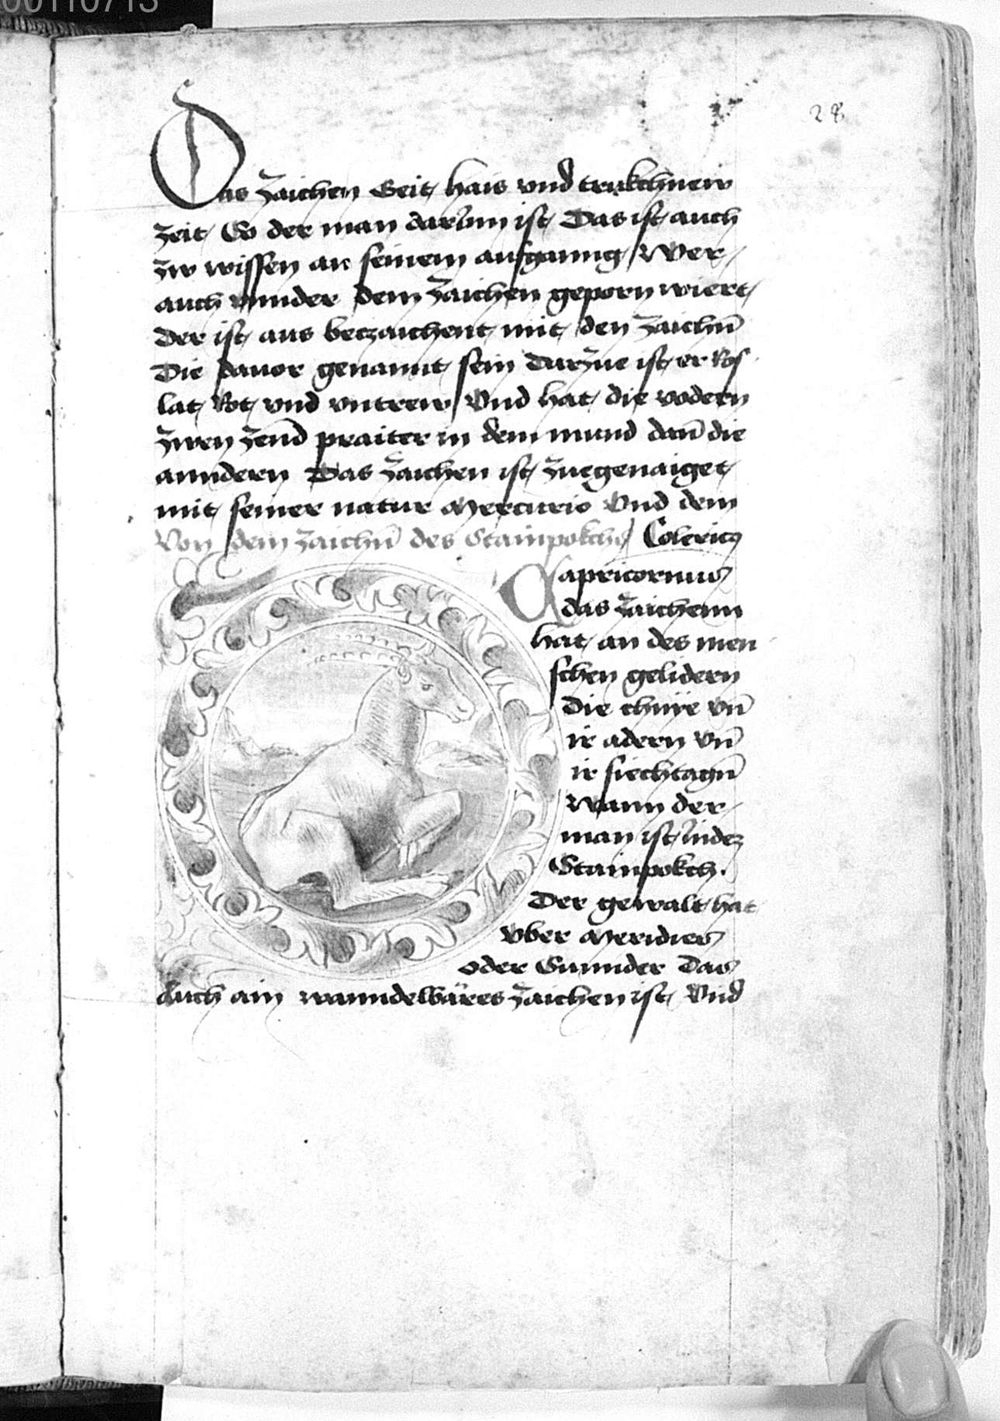 00110713
28
Das zaichen Geit hais vnd trukchnew
zeit So der man darInn ist Das ist auch
zw wissen an seinem aufganng Wer
auch vnnder dem zaichen geporn wiert
Der ist aus beczaichent mit den zaichn̄
Die dauor genannt sein Darzue ist er Ros
lat Rot vnd vntrew Vnd hat die vodern
zwen zend praiter in dem mund dan̄ die
anndern Das zaichen ist zuegenaiget
mit seiner natur Mercurio Vnd dem
Von dem zaichn̄ des Stainpokchs Colericus
Capricornnus
das zaichenn
hat an des men
schen gelidern
Die chnÿe vn̄
ir adern vn̄
ir siechtagn̄
Wann der
man ist Inder
Stainpokch.
Der gewalt hat
vber Meridies
oder Sunnder Das
Auch ain wanndelwäres zaichen ist Vnd